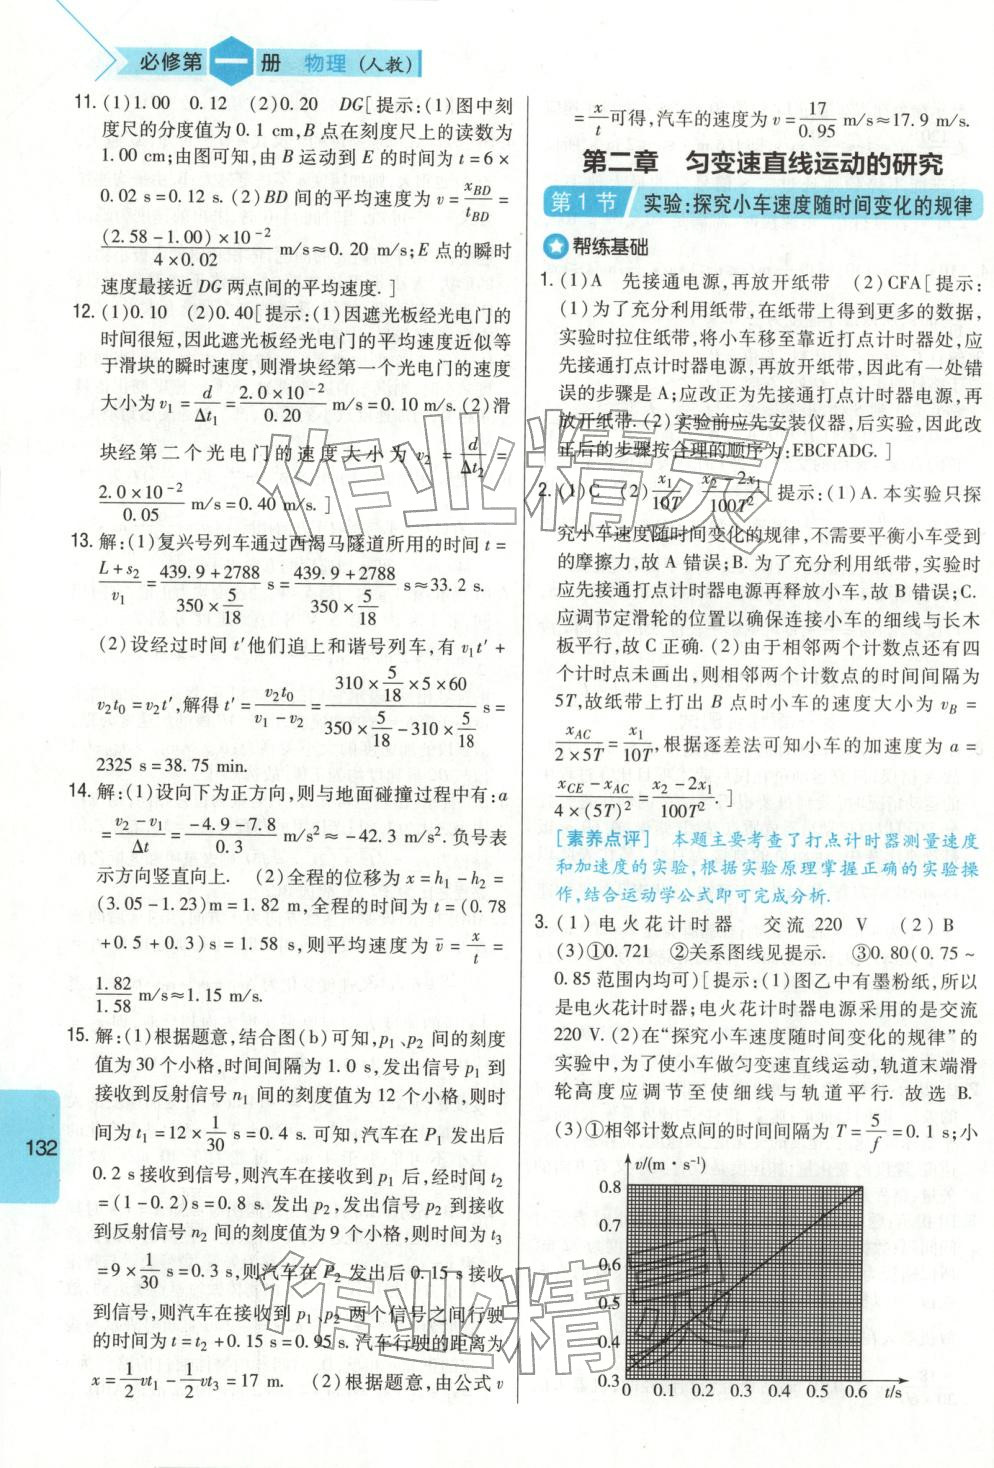 必修第一册 物理(人教)
11. (1)1.00 0.12 (2)0.20 DG[提示:(1)图中刻
度尺的分度值为0.1 cm,B点在刻度尺上的读数为
1.00 cm;由图可知,由B运动到E的时间为t=6×
0.02 s=0.12 s. (2)BD间的平均速度为v=x_BD/t_BD=
(2.58-1.00)×10⁻²/4×0.02 m/s≈0.20 m/s;E点的瞬时
速度最接近DG两点间的平均速度.]
12. (1)0.10 (2)0.40[提示:(1)因遮光板经光电门的
时间很短,因此遮光板经光电门的平均速度近似等
于滑块的瞬时速度,则滑块经第一个光电门的速度
大小为v₁=d/Δt₁=2.0×10⁻²/0.20 m/s=0.10 m/s.(2)滑
块经第二个光电门的速度大小为v₂=d/Δt₂=
2.0×10⁻²/0.05 m/s=0.40 m/s.]
13. 解:(1)复兴号列车通过西渴马隧道所用的时间t=
L+s₂/v₁=439.9+2788/350×5/18 s=439.9+2788/350×5/18 s≈33.2 s.
(2)设经过时间t′他们追上和谐号列车,有v₁t′+
v₂t₀=v₂t′,解得t′=v₂t₀/v₁-v₂=310×5/18×5×60/350×5/18-310×5/18 s=
2325 s=38.75 min.
14. 解:(1)设向下为正方向,则与地面碰撞过程中有:a
=v₂-v₁/Δt=-4.9-7.8/0.3 m/s²≈-42.3 m/s². 负号表
示方向竖直向上. (2)全程的位移为x=h₁-h₂=
(3.05-1.23)m=1.82 m,全程的时间为t=(0.78
+0.5+0.3)s=1.58 s,则平均速度为v̄=x/t=
1.82/1.58 m/s≈1.15 m/s.
15. 解:(1)根据题意,结合图(b)可知,p₁、p₂间的刻度
值为30个小格,时间间隔为1.0 s,发出信号p₁到
接收到反射信号n₁间的刻度值为12个小格,则时
间为t₁=12×1/30 s=0.4 s.可知,汽车在P₁发出后
0.2 s接收到信号,则汽车在接收到p₁后,经时间t₂
=(1-0.2)s=0.8 s.发出p₂,发出信号p₂到接收
到反射信号n₂间的刻度值为9个小格,则时间为t₃
=9×1/30 s=0.3 s,则汽车在P₂发出后0.15 s接收
到信号,则汽车在接收到p₁、p₂两个信号之间行驶
的时间为t=t₂+0.15 s=0.95 s.汽车行驶的距离为
x=1/2vt₁-1/2vt₃=17 m. (2)根据题意,由公式v
132
=x/t可得,汽车的速度为v=17/0.95 m/s≈17.9 m/s.
第二章 匀变速直线运动的研究
第1节 实验:探究小车速度随时间变化的规律
帮练基础
1. (1)A 先接通电源,再放开纸带 (2)CFA[提示:
(1)为了充分利用纸带,在纸带上得到更多的数据,
实验时拉住纸带,将小车移至靠近打点计时器处,应
先接通打点计时器电源,再放开纸带,因此有一处错
误的步骤是A;应改正为先接通打点计时器电源,再
放开纸带.(2)实验前应先安装仪器,后实验,因此改
正后的步骤按合理的顺序为:EBCFADG.]
2. (1)C (2)x₁/10T x₂-2x₁/100T²[提示:(1)A.本实验只探
究小车速度随时间变化的规律,不需要平衡小车受到
的摩擦力,故A错误;B.为了充分利用纸带,实验时
应先接通打点计时器电源再释放小车,故B错误;C.
应调节定滑轮的位置以确保连接小车的细线与长木
板平行,故C正确.(2)由于相邻两个计数点还有四
个计时点未画出,则相邻两个计数点的时间间隔为
5T,故纸带上打出B点时小车的速度大小为v_B=
x_AC/2×5T=x₁/10T,根据逐差法可知小车的加速度为a=
x_CE-x_AC/4×(5T)²=x₂-2x₁/100T².]
[素养点评] 本题主要考查了打点计时器测量速度
和加速度的实验,根据实验原理掌握正确的实验操
作,结合运动学公式即可完成分析.
3. (1)电火花计时器 交流220 V (2)B
(3)①0.721 ②关系图线见提示. ③0.80(0.75~
0.85范围内均可)[提示:(1)图乙中有墨粉纸,所以
是电火花计时器;电火花计时器电源采用的是交流
220 V.(2)在“探究小车速度随时间变化的规律”的
实验中,为了使小车做匀变速直线运动,轨道末端滑
轮高度应调节至使细线与轨道平行.故选B.
(3)①相邻计数点间的时间间隔为T=5/f=0.1 s;小
v/(m·s⁻¹)
0.8
0.7
0.6
0.5
0.4
0.3
0 0.1 0.2 0.3 0.4 0.5 0.6 t/s
作业精灵
作业精灵